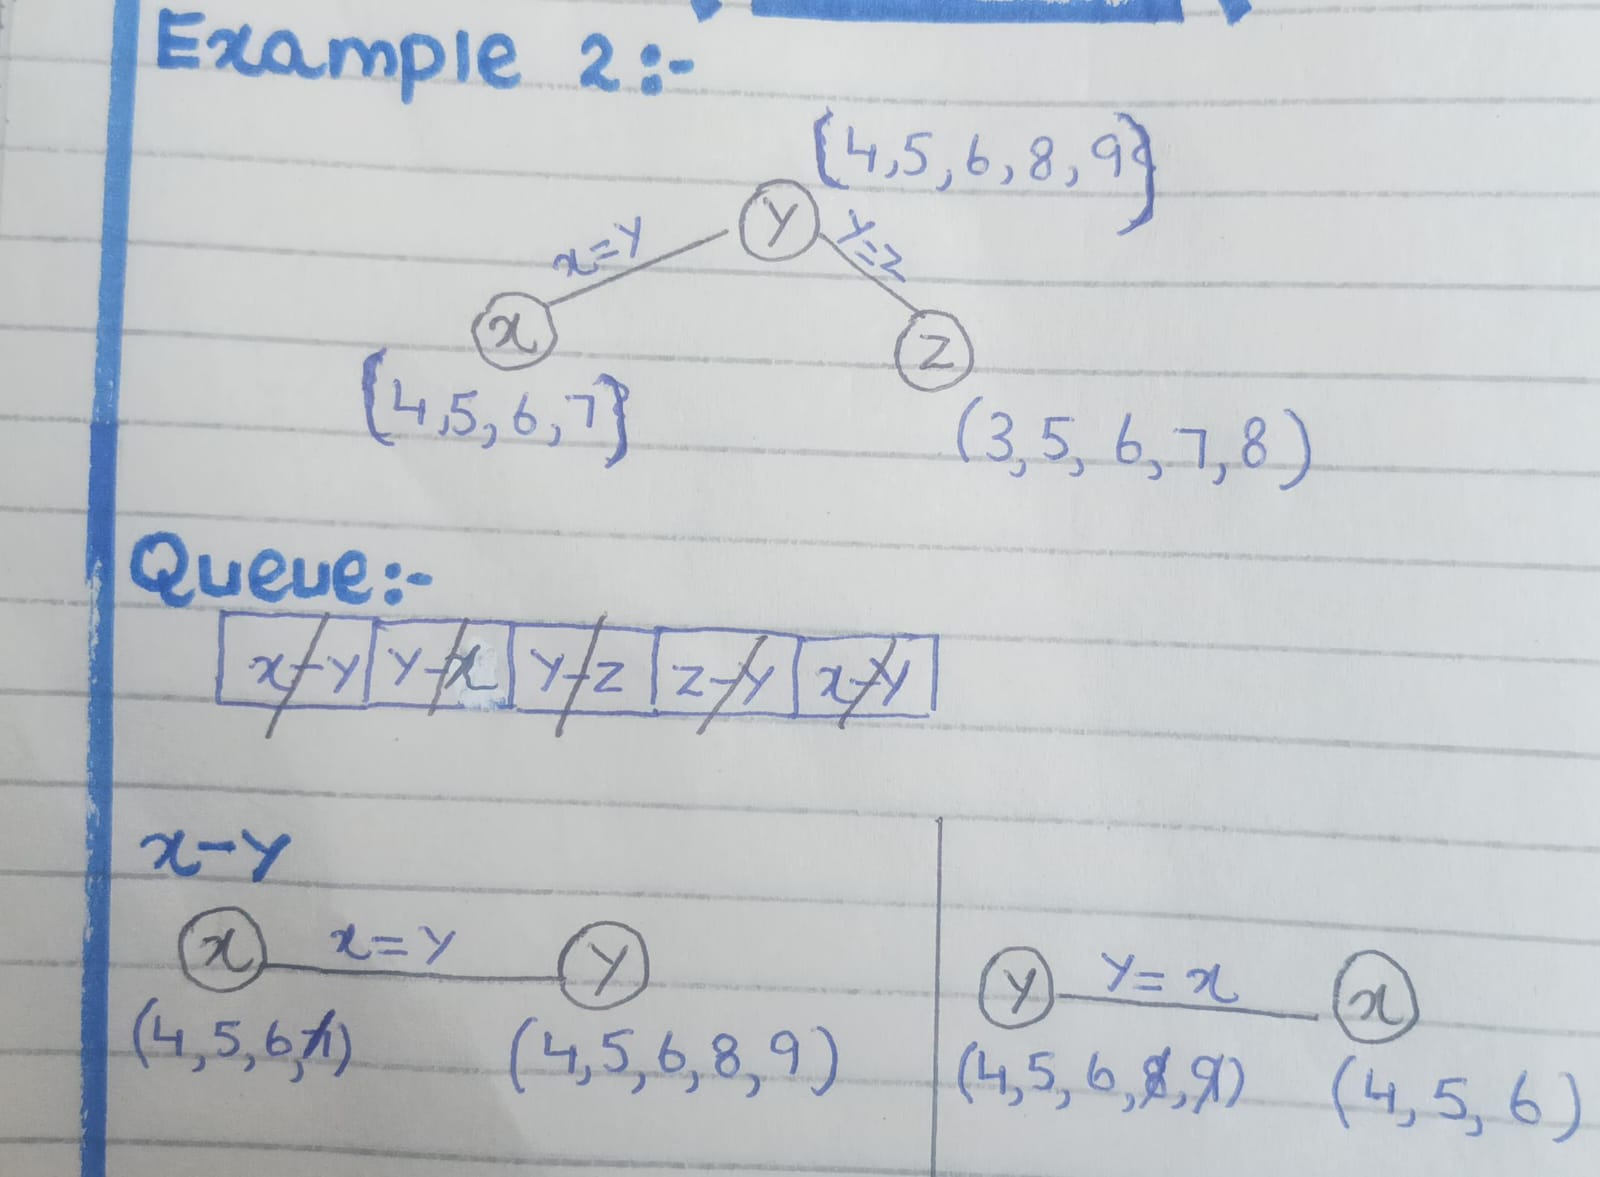 Example 2:-
{4,5,6,8,9}
x=y
y
y=z
x
z
{4,5,6,7}
(3,5,6,7,8)
Queue:-
x-y y-x y-z z-y x-y
x-y
x x=y y
y y=x x
(4,5,6,7) (4,5,6,8,9)
(4,5,6,8,9) (4,5,6)